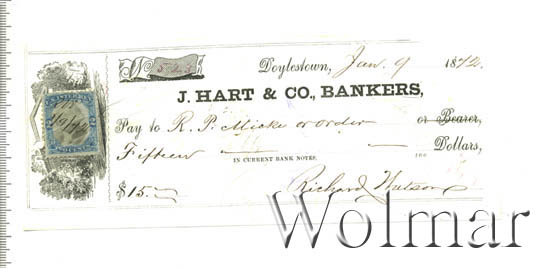 No 523
Doylestown, Jan. 9 1872.
J. HART & CO., BANKERS,
Pay to R. P. Micke or order or Bearer,
Fifteen Dollars,
IN CURRENT BANK NOTES. 100
$15.
Richard Watson
1/9/72
Wolmar